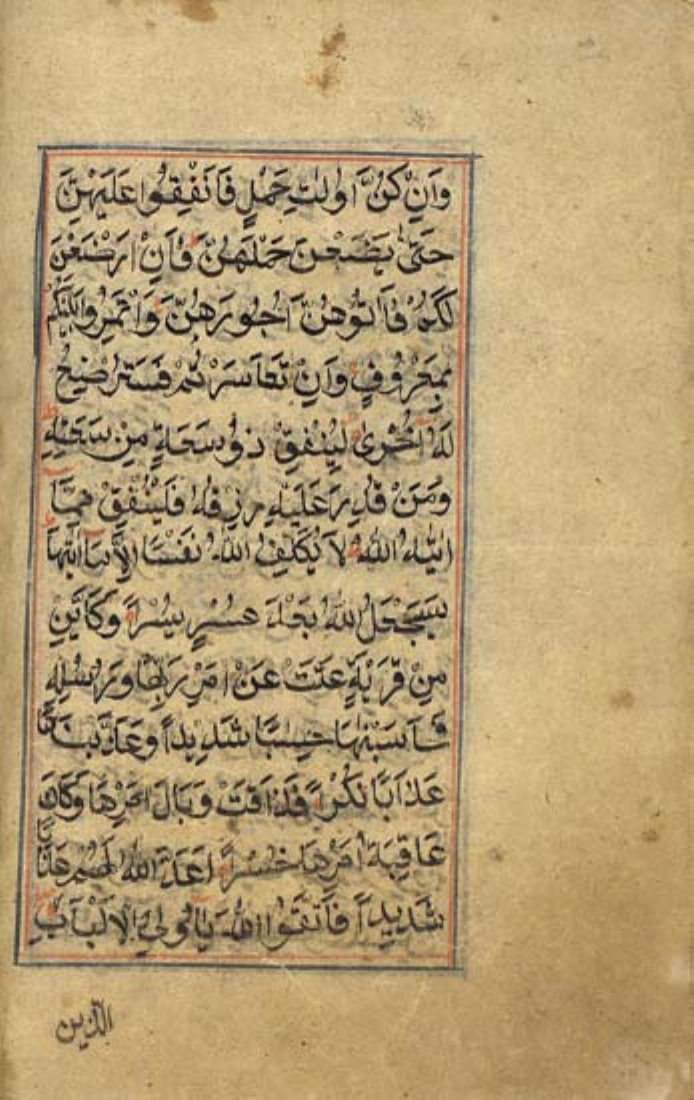 وَاِنْ كُنَّ اُولٰتِ حَمْلٍ فَاَنْفِقُوا عَلَيْهِنَّ
حَتّٰى يَضَعْنَ حَمْلَهُنَّ فَاِنْ اَرْضَعْنَ
لَكُمْ فَاٰتُوهُنَّ اُجُورَهُنَّ وَاْتَمِرُوا بَيْنَكُمْ
بِمَعْرُوفٍ وَاِنْ تَعَاسَرْتُمْ فَسَتُرْضِعُ
لَهُ اُخْرٰى لِيُنْفِقْ ذُو سَعَةٍ مِنْ سَعَتِهِ
وَمَنْ قُدِرَ عَلَيْهِ رِزْقُهُ فَلْيُنْفِقْ مِمَّا
اٰتٰيهُ اللّٰهُ لَا يُكَلِّفُ اللّٰهُ نَفْسًا اِلَّا مَا اٰتٰيهَا
سَيَجْعَلُ اللّٰهُ بَعْدَ عُسْرٍ يُسْرًا وَكَاَيِّنْ
مِنْ قَرْيَةٍ عَتَتْ عَنْ اَمْرِ رَبِّهَا وَرُسُلِهِ
فَحَاسَبْنٰهَا حِسَابًا شَدِيدًا وَعَذَّبْنَاهَا
عَذَابًا نُكْرًا فَذَاقَتْ وَبَالَ اَمْرِهَا وَكَانَ
عَاقِبَةُ اَمْرِهَا خُسْرًا اَعَدَّ اللّٰهُ لَهُمْ عَذَابًا
شَدِيدًا فَاتَّقُوا اللّٰهَ يَا اُولِى الْاَلْبَابِ
الَّذِينَ